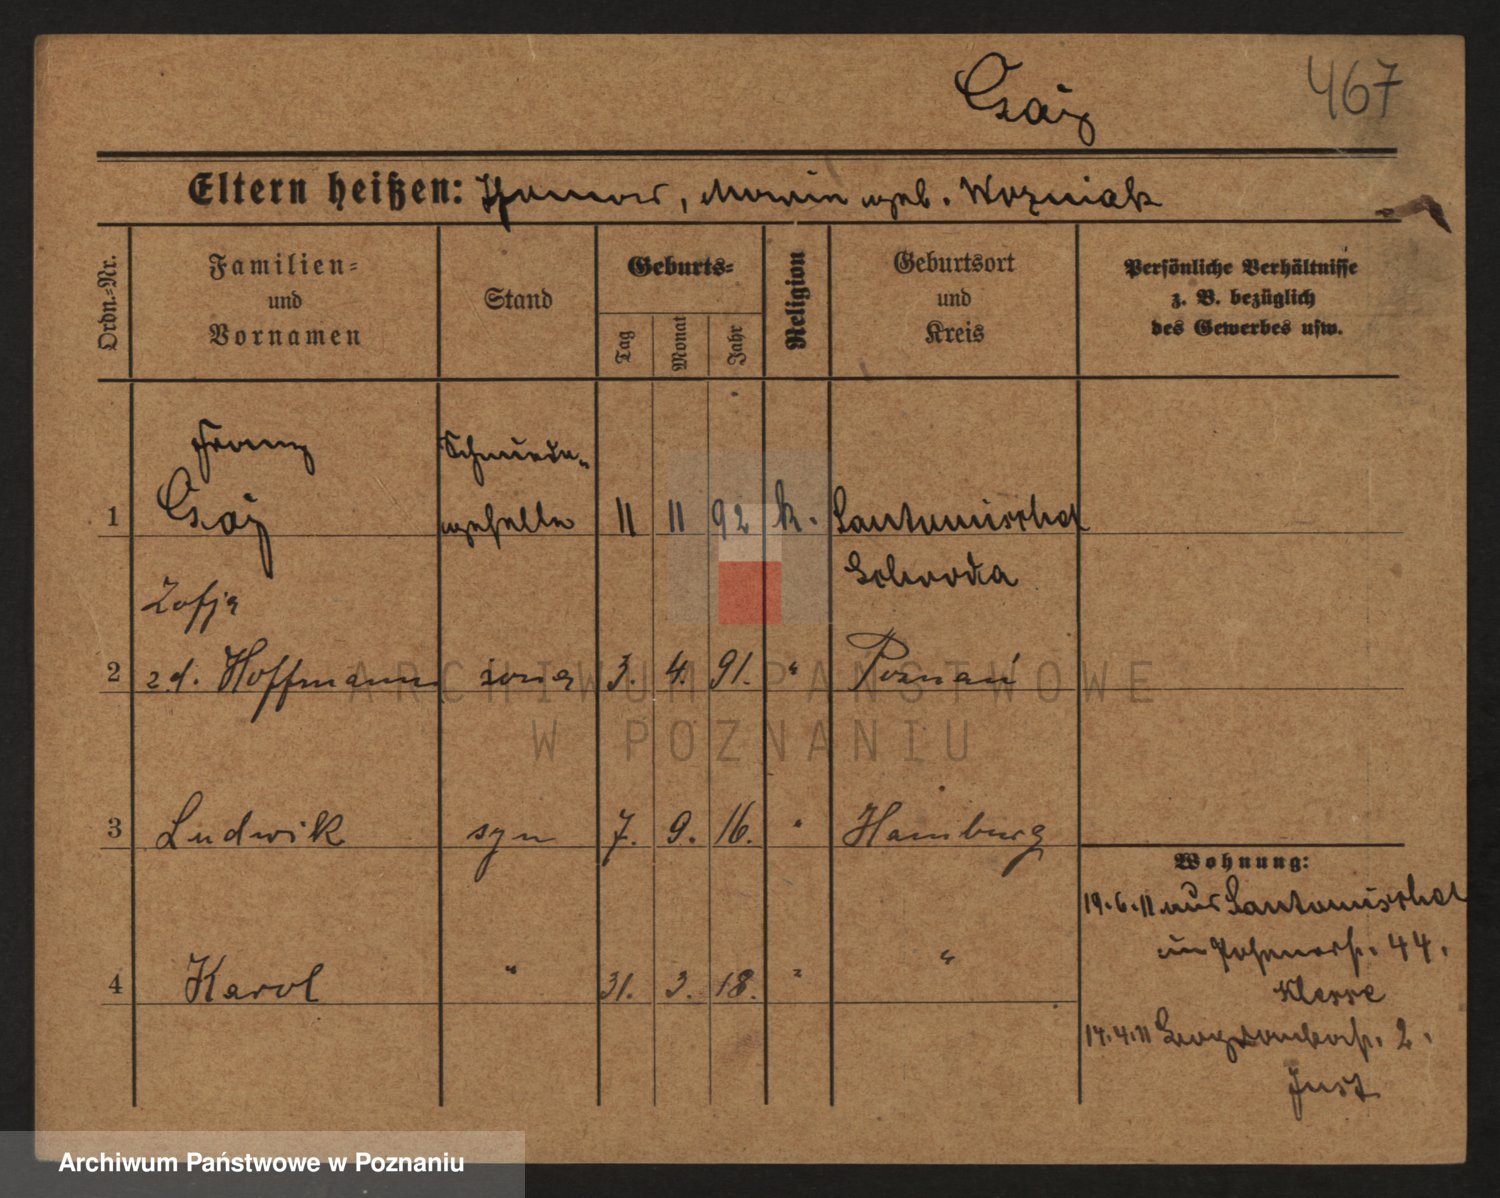 Czaj
467
Eltern heißen: Thomas, Marie geb. Wozniak
Ordn.-Nr.
Familien-
und
Vornamen
Stand
Geburts-
Tag
Monat
Jahr
Religion
Geburtsort
und
Kreis
Persönliche Verhältnisse
z. B. bezüglich
des Gewerbes usw.
Franz Schmiede-
1 Czaj geselle 11 11 92 k. Santomischel
Schroda
Zofja
2 z d. Hoffmann żona 3. 4. 91. " Poznań
3 Ludwik syn 7. 9. 16. " Hamburg
4 Karol " 31. 3. 18. " "
Wohnung:
19.6.11 aus Santomischel
in Posenerstr. 44.
14.4.11 2.
Just
ARCHIWUM PAŃSTWOWE
W POZNANIU
Archiwum Państwowe w Poznaniu